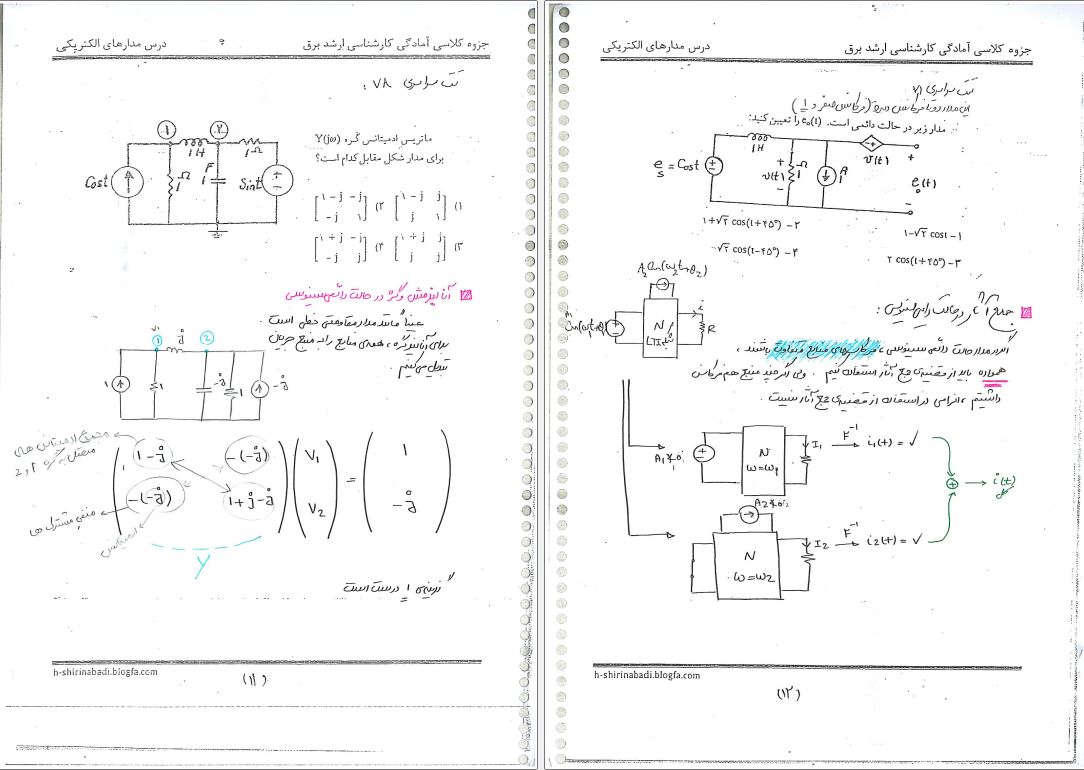 جزوه کلاسی آمادگی کارشناسی ارشد برق
درس مدارهای الکتریکی
تست سراسری ۷۸ :
ماتریس ادمیتانس گره Y(jω)
برای مدار شکل مقابل کدام است؟
Cost
1
2
1 H
1 Ω
Ω
1
F
1
Sint
۱) [1-j j
j 1]
۲) [1-j -j
-j 1]
۳) [1+j j
j j]
۴) [1+j -j
-j j]
آنالیز مش و گره در حالت دائمی سینوسی
عیناً مانند مدار مقاومتی خطی است .
برای آنالیز گره ، همه‌ی منابع را به منبع جریان
تبدیل می‌کنیم
V₁
1
2
j
1
1
-j
1
-j
مجموع ادمیتانس های
متصل به گره ۱ و ۲
منفی مشترک ها
ادمیتانس
1-j -(-j) V₁ = 1
-(-j) 1+j-j V₂ -j
Y
گزینه‌ی ۱ درست است
h-shirinabadi.blogfa.com
(۱۱)
جزوه کلاسی آمادگی کارشناسی ارشد برق
درس مدارهای الکتریکی
تست سراسری ۷۱
این مدار دوتا فرکانس دارد (فرکانس صفر و 1)
مدار زیر در حالت دائمی است. e₀(t) را تعیین کنید:
eₛ = Cost
1H
+
v(t)
-
Ω
1
A
1
v(t)
+
e₀(t)
-
۱- 1-√۲ cost
۲- 1+√۲ cos(t+۴۵°)
۳- ۲ cos(t+۴۵°)
۴- √۲ cos(t-۴۵°)
A₂ Sin(ω₂t+θ₂)
A₁ Sin(ω₁t+θ₁)
N
LTI
i
R
جمع آثار در حالت دائمی سینوسی :
اگر مدار حالت دائمی سینوسی ، فرکانس‌های منابع متفاوت باشند ،
همواره باید از قضیه‌ی جمع آثار استفاده کنیم . ولی اگر چند منبع هم فرکانس
داشتیم ، الزامی در استفاده از قضیه‌ی جمع آثار نیست .
A₁∡θ₁
N
ω=ω₁
I₁
F⁻¹
i₁(t) = ✓
A₂∡θ₂
N
ω=ω₂
I₂
F⁻¹
i₂(t) = ✓
+
i(t)
h-shirinabadi.blogfa.com
(۱۲)